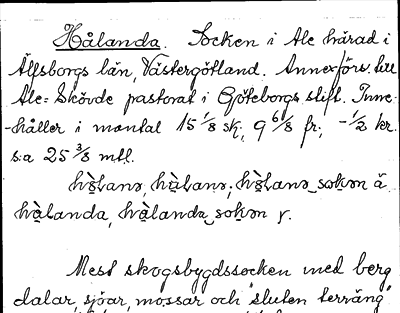 Hålanda. Socken i Ale härad i
Älfsborgs län, Västergötland. Annexförs. till
Ale-Skövde pastorat i Göteborgs stift. Inne-
-håller i mantal 15 1/8 sk, 9 6/8 fr, -1/2 kr.
s:a 25 3/8 mtl.
hå̀landa, hå̀landa_sokən
Mest skogsbygdssocken med berg
dalar, sjöar, mossar och "sluten terräng"